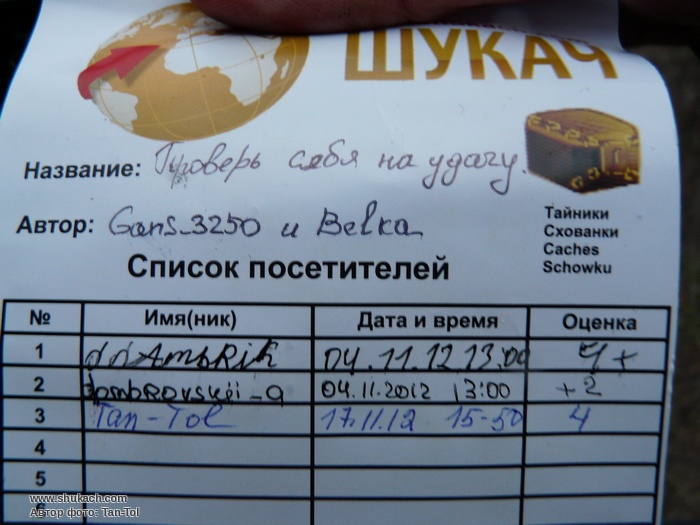 ШУКАЧ
Название: Проверь себя на удачу.
Автор: Gans_3250 и Belka
Тайники
Схованки
Caches
Schowku
Список посетителей
№ Имя(ник) Дата и время Оценка
1 04.11.12 13:00 4+
2 04.11.2012 13:00 +2
3 Tan-Tol 17.11.12 15-50 4
4
5
6
www.shukach.com
Автор фото: Tan-Tol